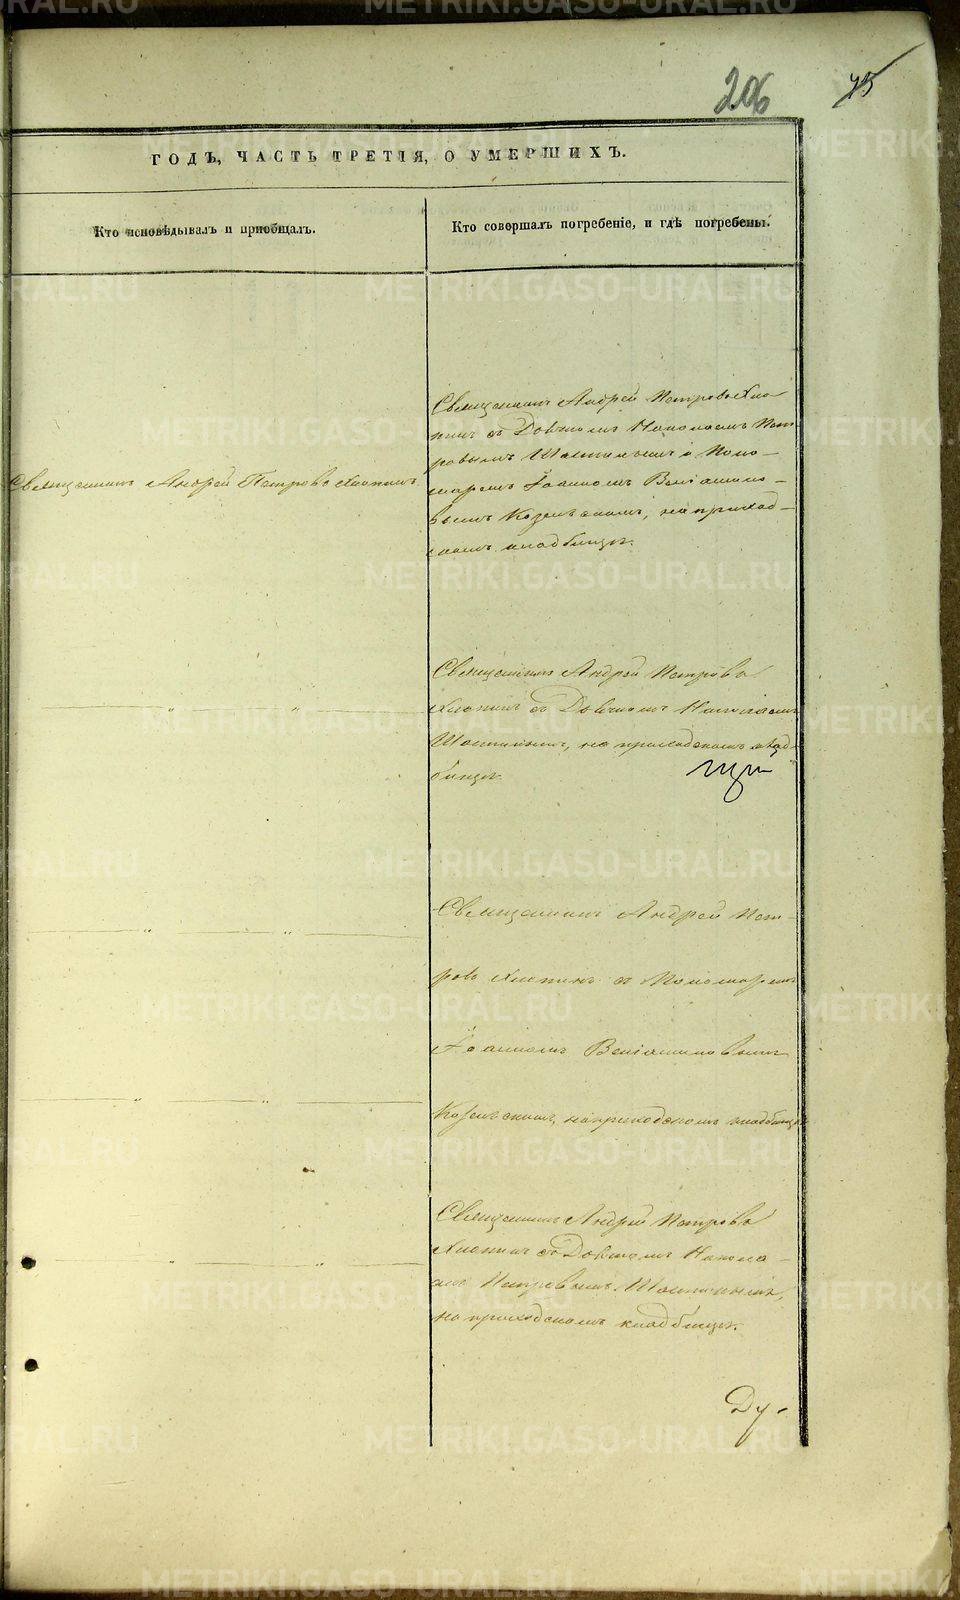 206 45
ГОДЪ, ЧАСТЬ ТРЕТІЯ, О УМЕРШИХЪ.
Кто исповѣдывалъ и пріобщалъ.
Кто совершалъ погребеніе, и гдѣ погребены.
Священникъ Андрей Петровъ Хлопинъ
Священникъ Андрей Петровъ Хло-
пинъ съ Дьячкомъ Николаемъ Пет-
ровымъ и Поно-
маремъ Іоанномъ Веніамино-
вымъ на приход-
скомъ кладбищѣ.
Священникъ Андрей Петровъ
Хлопинъ съ Дьячкомъ Николаемъ
на приходскомъ клад-
бищѣ.
Священникъ Андрей Пет-
ровъ Хлопинъ съ Пономаремъ
Іоанномъ Веніаминовымъ
на приходскомъ кладбищѣ
Священникъ Андрей Петровъ
Хлопинъ съ Дьячкомъ Никола-
емъ Петровымъ
на приходскомъ кладбищѣ.
Ду-
METRIKI.GASO-URAL.RU